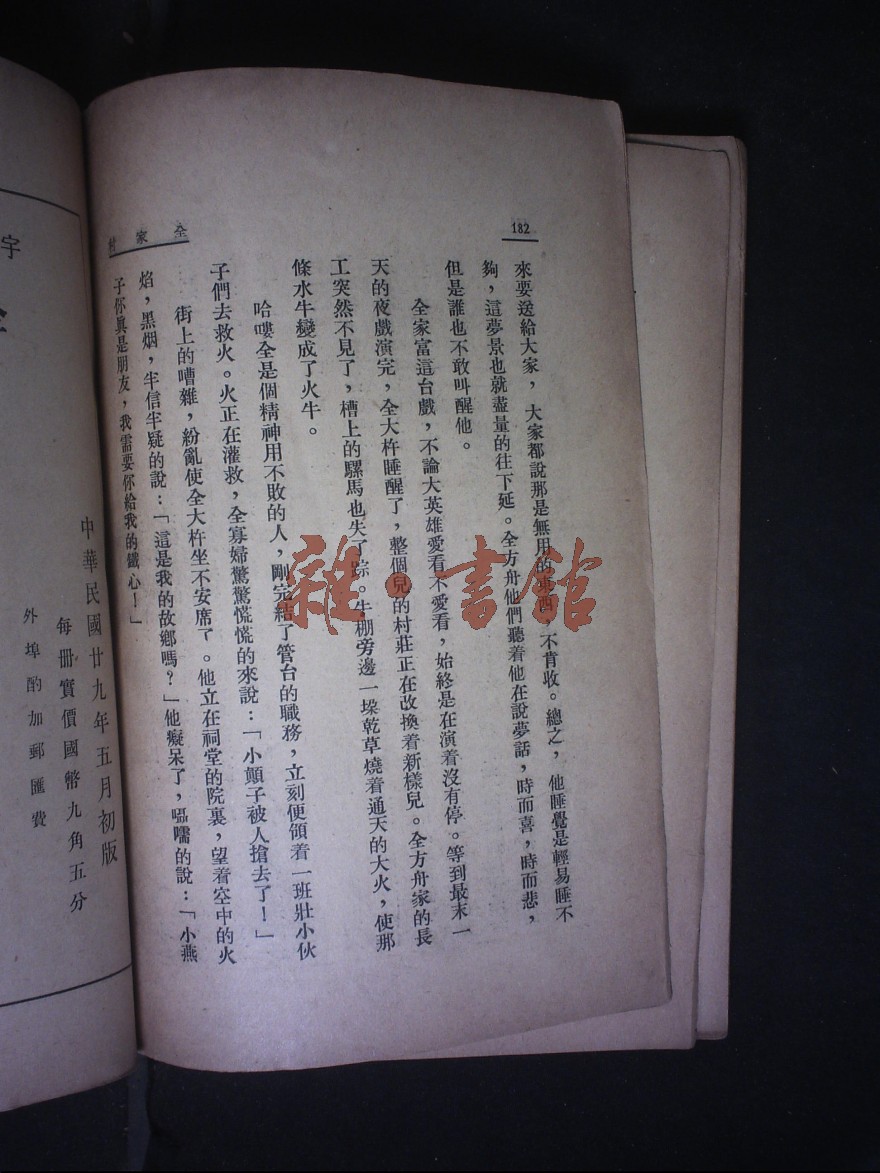 182
來要送給大家，大家都說那是無用的東西，不肯收。總之，他睡覺是輕易睡不
夠，這夢景也就盡量的往下延。全方舟他們聽着他在說夢話，時而喜，時而悲，
但是誰也不敢叫醒他。
全家富這台戲，不論大英雄愛看不愛看，始終是在演着沒有停。等到最末一
天的夜戲演完，全大杵睡醒了，整個兒的村莊正在改換着新樣兒。全方舟家的長
工突然不見了，槽上的騾馬也失了踪。牛棚旁邊一垛乾草燒着通天的大火，使那
條水牛變成了火牛。
哈嘍全是個精神用不敗的人，剛完結了管台的職務，立刻便領着一班壯小伙
子們去救火。火正在灌救，全寡婦驚驚慌慌的來說：「小顛子被人搶去了！」
街上的嘈雜，紛亂使全大杵坐不安席了。他立在祠堂的院裏，望着空中的火
焰，黑烟，半信半疑的說：「這是我的故鄉嗎？」他癡呆了，囁嚅的說：「小燕
子你眞是朋友，我需要你給我的鐵心！」
全家村
中華民國廿九年五月初版
每冊實價國幣九角五分
外埠酌加郵匯費
宇
雜·書館